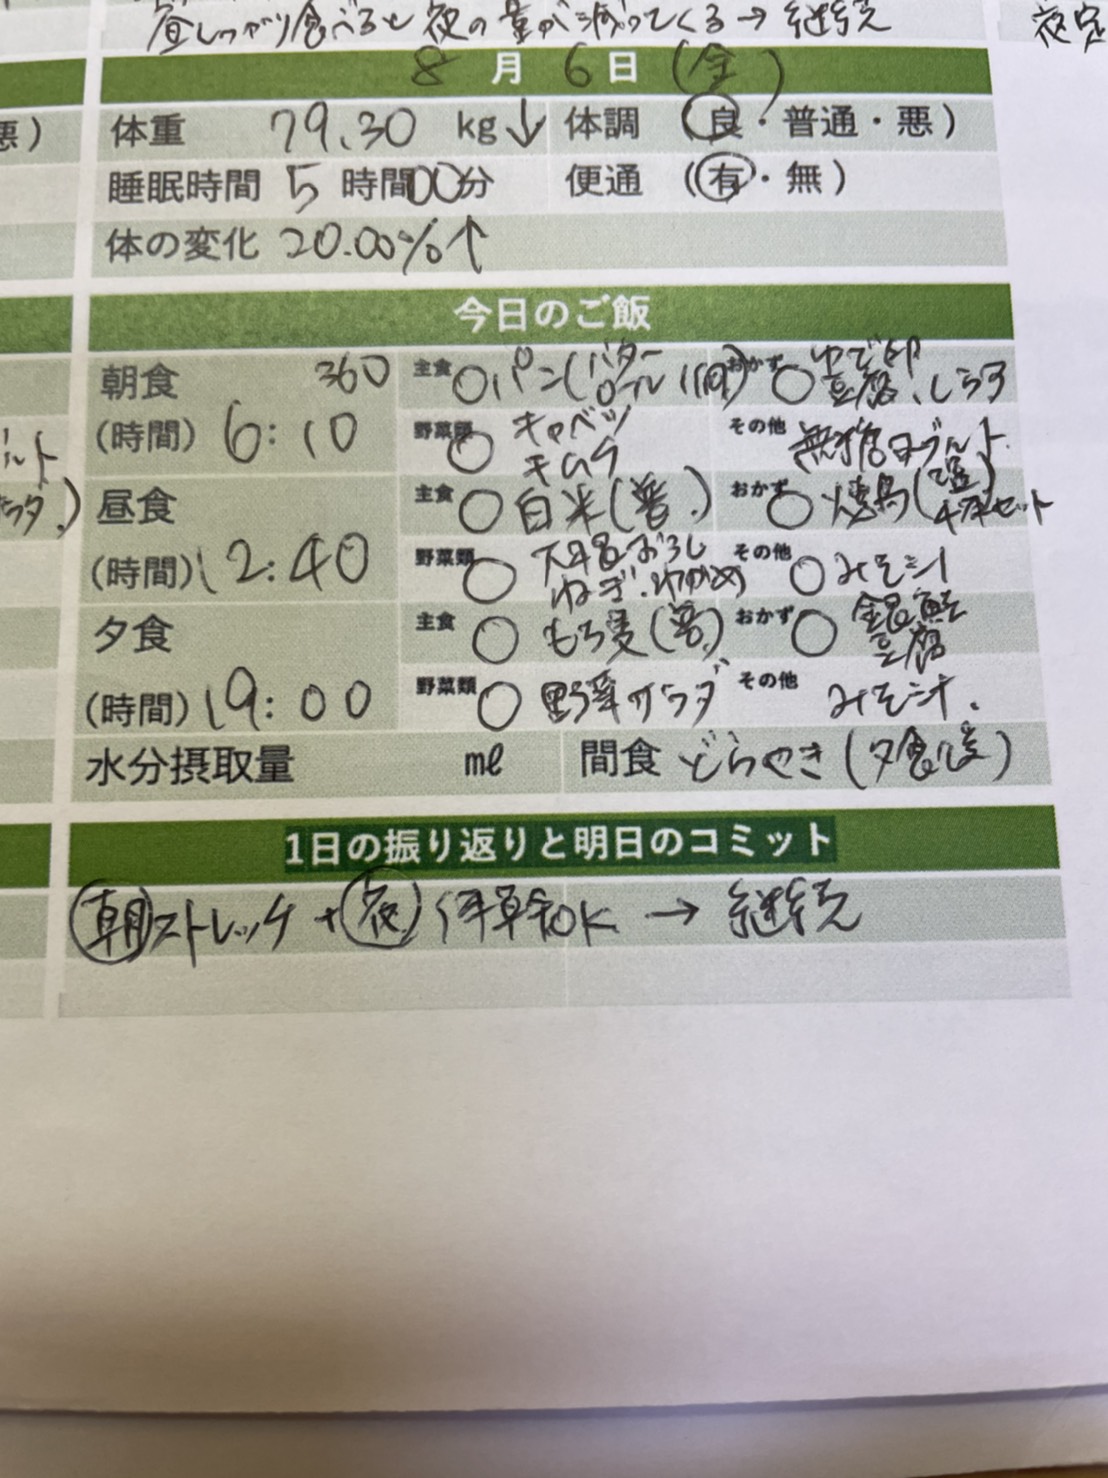 昼しっかり食べると夜の量が減ってくる→継続
8月6日(金)
体重 79.30 kg↓ 体調 (良・普通・悪)
睡眠時間 5時間00分 便通 (有・無)
体の変化 20.00%↑
今日のご飯
朝食 360 主食 ○パン(バターロール1個) おかず ○ゆで卵 豆腐、しらす
(時間) 6:10 野菜類 ○ キャベツ キムチ その他 無糖ヨーグルト
昼食 主食 ○白米(普.) おかず ○焼鳥(塩) 4本セット
(時間) 12:40 野菜類 ○ 大根おろし ねぎ.わかめ その他 ○みそ汁
夕食 主食 ○もち麦(普.) おかず ○銀鮭 豆腐
(時間) 19:00 野菜類 ○野菜サラダ その他 みそ汁.
水分摂取量 ml 間食 どらやき(夕食後)
1日の振り返りと明日のコミット
朝ストレッチ+夜 体幹OK → 継続